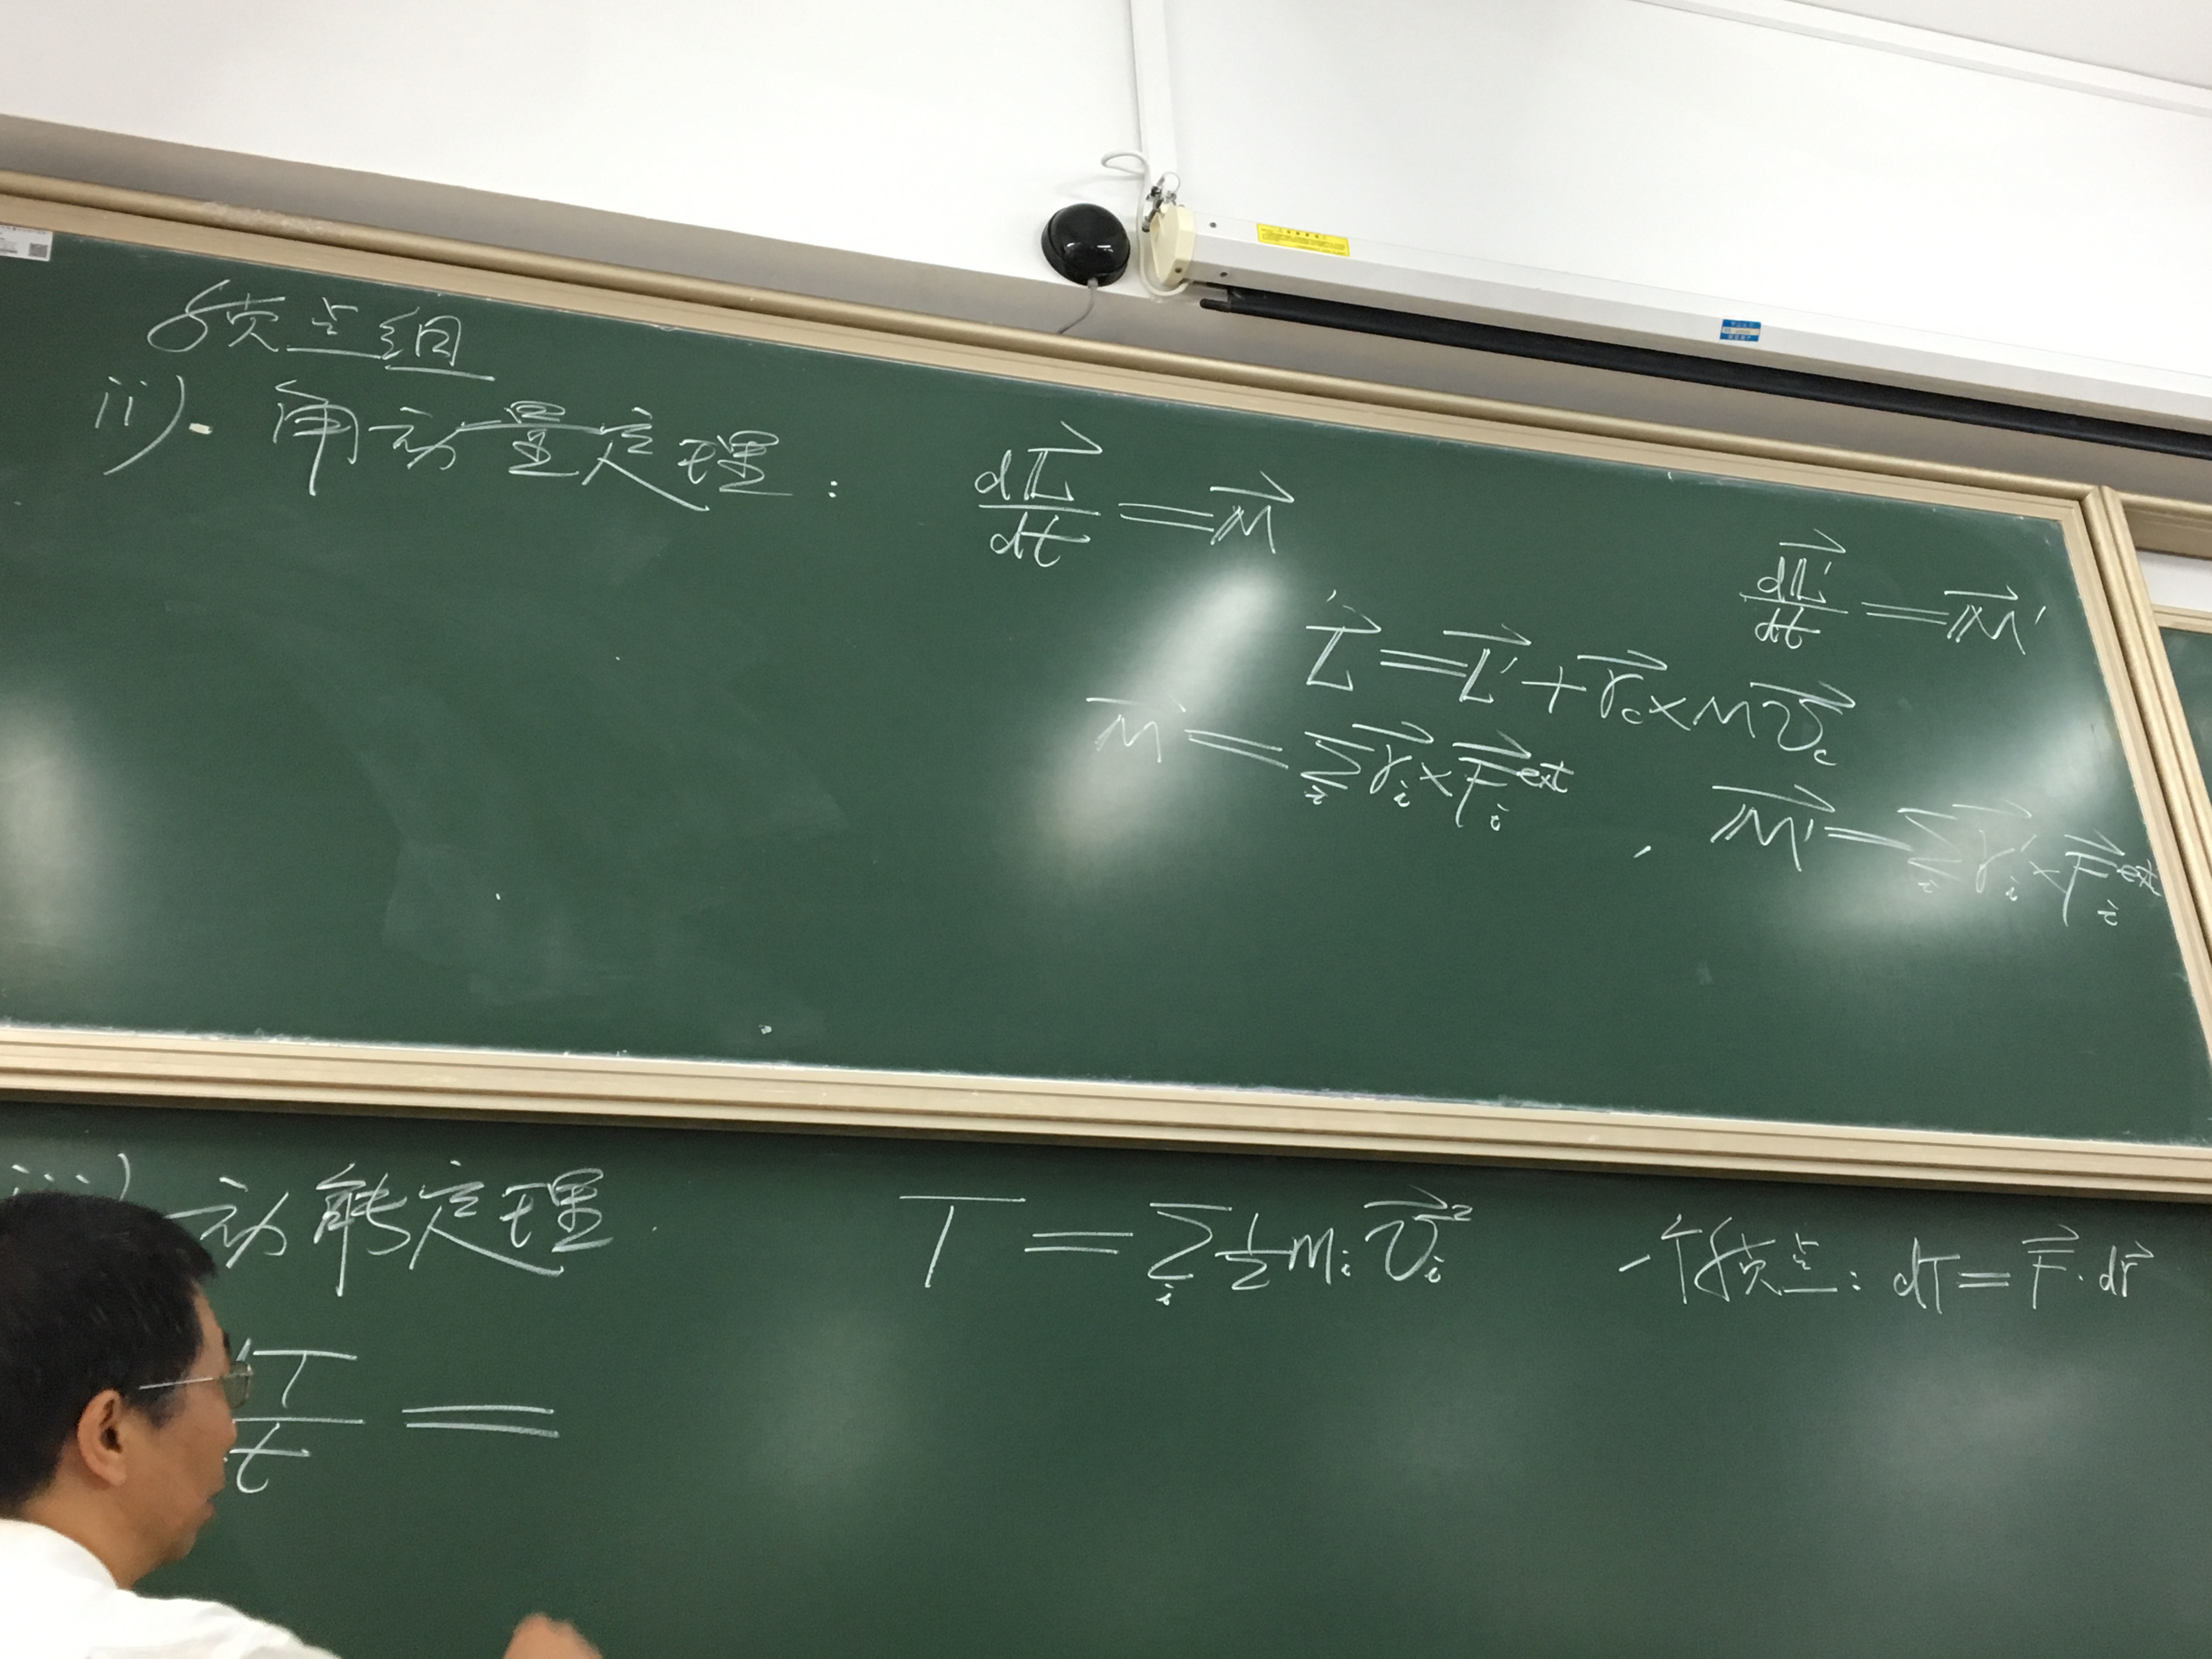 质点组
ii). 角动量定理: dL⃗/dt = M⃗
dL⃗'/dt = M⃗'
L⃗ = L⃗' + r⃗c × m v⃗c
M⃗ = Σi r⃗i × F⃗i^ext , M⃗' = Σi r⃗i' × F⃗i^ext
iii) 动能定理. T = Σi 1/2 mi v⃗i² 一个质点: dT = F⃗ · dr⃗
dT/dt =